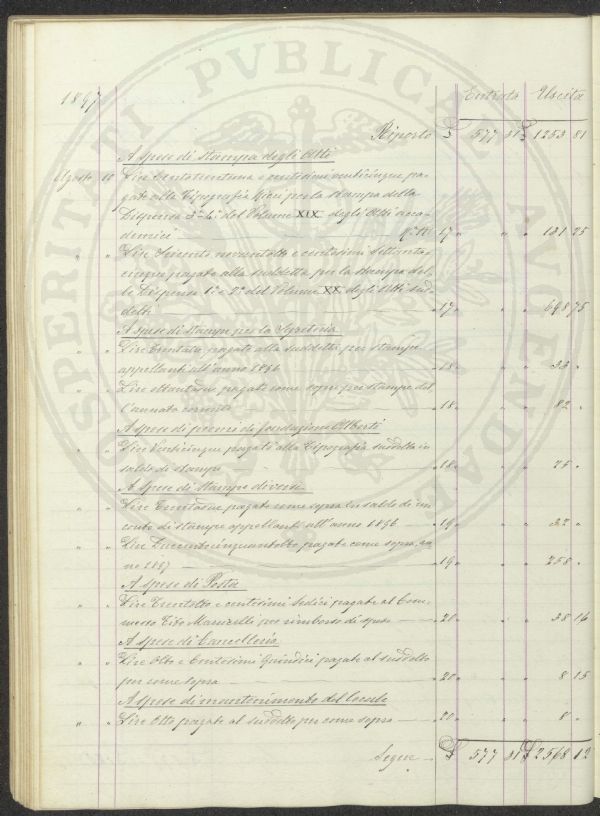 PROSPERITATI PVBLICAE AVGENDAE
1897
Entrata Uscita
Riporto £ 577 31 £ 1253 81
A spese di Stampa degli Atti
Agosto 10 Lire Centotrentuna e centesimi venticinque pa-
gate alla Tipografia Ricci per la stampa della
Dispensa 3ª 4ª del Volume XIX degli Atti acca-
demici 17 " " " 131 25
" " Lire Seicento novantotto e centesimi settanta-
cinque pagate alla suddetta per la stampa del-
le Dispense 1ª e 2ª del Volume XX degli Atti sud-
detti " 17 " " " 698 75
A spese di Stampe per la Segreteria
" " Lire Trentatre pagate alla suddetta per stampe
appellanti all'anno 1896 " 18 " " " 33 "
" " Lire ottantadue pagate come sopra per stampe del
l'annata corrente " 18 " " " 82 "
A spese di premi di fondazione Alberti
" " Lire Venticinque pagate alla Tipografia suddetta in
saldo di stampe " 18 " " " 25 "
A spese di Stampe diverse
" " Lire Trentadue pagate come sopra in saldo di un
conto di stampe appellanti all'anno 1896 " 19 " " " 32 "
" " Lire Duecentocinquantotto pagate come sopra, an-
no 1897 " 19 " " " 258 "
A spese di Posta
" " Lire Trentotto e centesimi Sedici pagate al Com-
messo Tito Marucelli per rimborso di spese " 20 " " " 38 16
A spese di Cancelleria
" " Lire Otto e Centesimi Quindici pagate al suddetto
per come sopra " 20 " " " 8 15
A spese di mantenimento del locale
" " Lire Otto pagate al suddetto per come sopra " 20 " " " 8 "
Segue £ 577 31 £ 2568 12